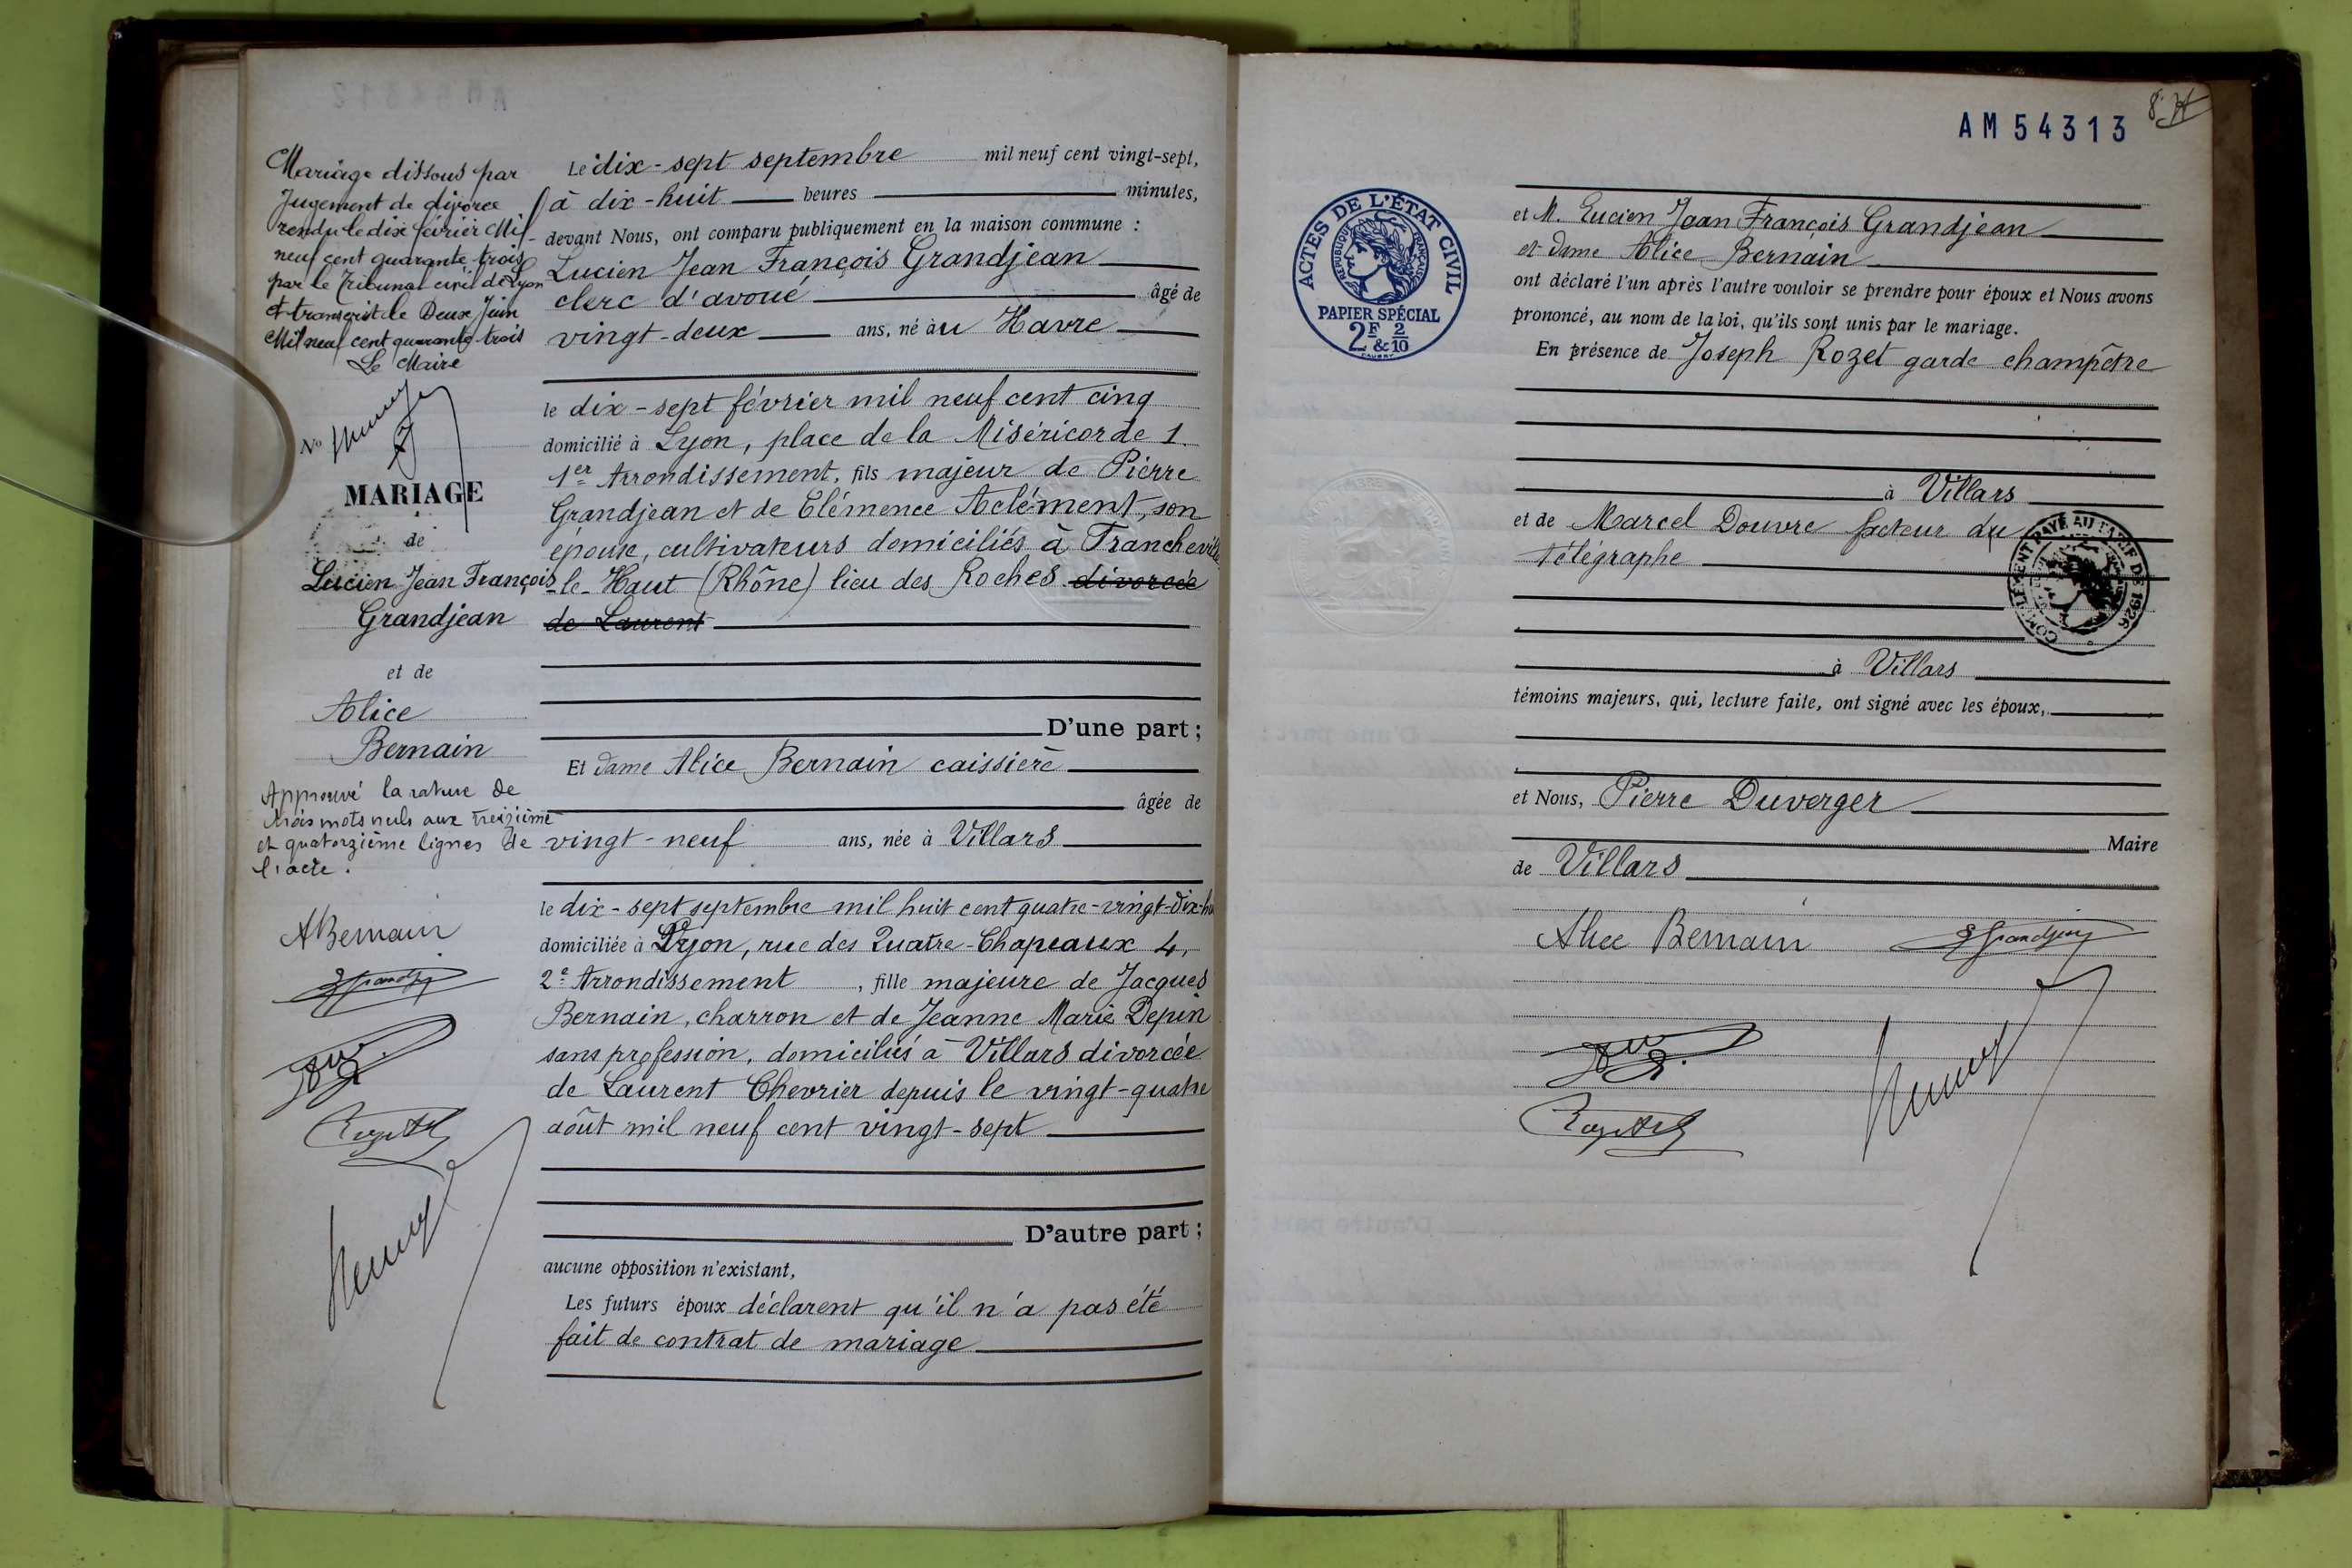 Mariage dissous par
Jugement de divorce
rendu le dix février Mil
neuf cent quarante-trois
par le Tribunal civil de Lyon
et transcrit le Deux Juin
Mil neuf cent quarante-trois
Le Maire
No
MARIAGE
de
Lucien Jean François
Grandjean
et de
Alice
Bernain
Approuvé la rature de
trois mots nuls aux treizième
et quatorzième lignes de
l'acte.
ABernain
Le dix-sept septembre mil neuf cent vingt-sept,
à dix-huit heures minutes,
devant Nous, ont comparu publiquement en la maison commune :
Lucien Jean François Grandjean
clerc d'avoué âgé de
vingt-deux ans, né au Havre
le dix-sept février mil neuf cent cinq
domicilié à Lyon, place de la Miséricorde 1.
1er Arrondissement, fils majeur de Pierre
Grandjean et de Clémence Aclément, son
épouse, cultivateurs domiciliés à Francheville
-le-Haut (Rhône) lieu des Roches divorcée
de Laurent
D'une part ;
Et dame Alice Bernain caissière
âgée de
vingt-neuf ans, née à Villars
le dix-sept septembre mil huit cent quatre-vingt-dix-hu
domiciliée à Lyon, rue des Quatre-Chapeaux 4,
2e Arrondissement , fille majeure de Jacques
Bernain, charron et de Jeanne Marie Depin
sans profession, domiciliés à Villars divorcée
de Laurent Chevrier depuis le vingt-quatre
août mil neuf cent vingt-sept
D'autre part ;
aucune opposition n'existant,
Les futurs époux déclarent qu'il n'a pas été
fait de contrat de mariage
AM 54313
ACTES DE L'ÉTAT CIVIL
RÉPUBLIQUE FRANÇAISE
PAPIER SPÉCIAL
2F & 2/10
et M. Lucien Jean François Grandjean
et dame Alice Bernain
ont déclaré l'un après l'autre vouloir se prendre pour époux et Nous avons
prononcé, au nom de la loi, qu'ils sont unis par le mariage.
En présence de Joseph Rozet garde champêtre
à Villars
et de Marcel Douvre facteur du
télégraphe
COMPLÉMENT PAYÉ AU TARIF DE 1926
à Villars
témoins majeurs, qui, lecture faite, ont signé avec les époux,
et Nous, Pierre Duverger
Maire
de Villars
Alice Bernain